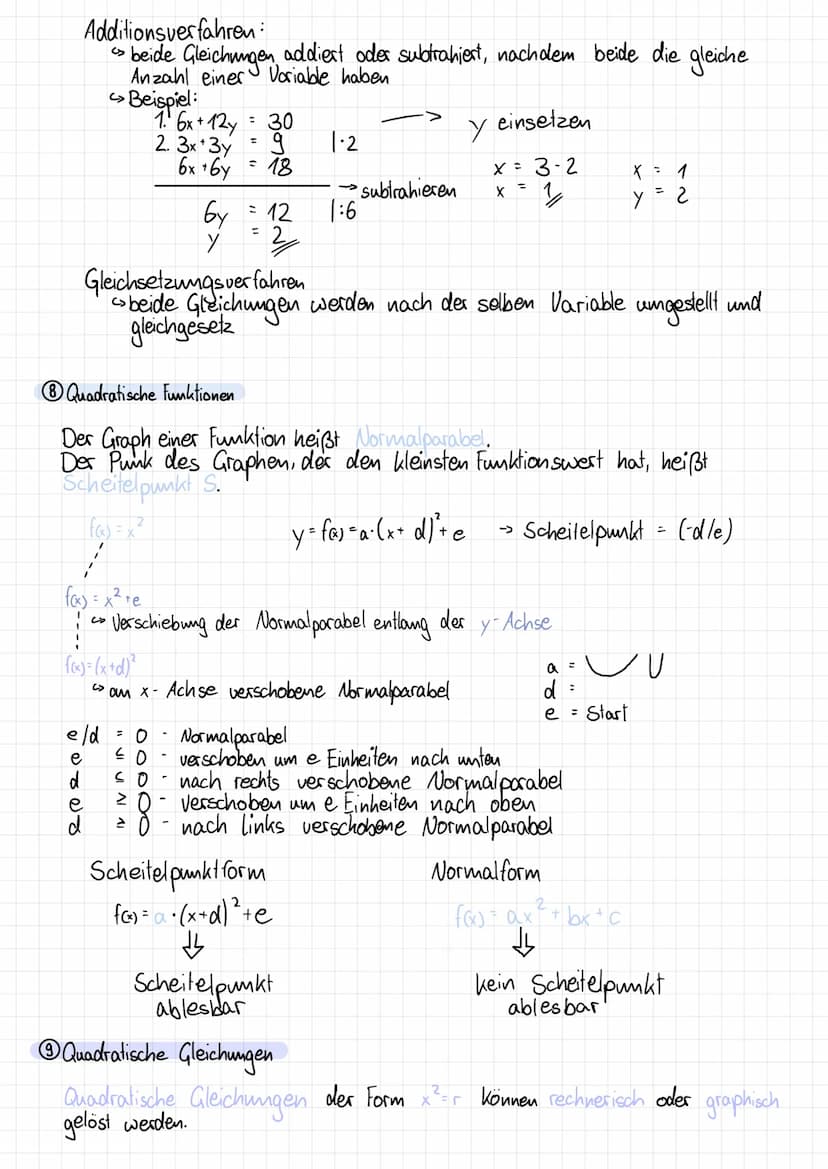 Additionsverfahren:
↪ beide Gleichungen addiert oder subtrahiert, nachdem beide die gleiche
Anzahl einer Variable haben
↪ Beispiel:
1. 6x + 12y = 30 → y einsetzen
2. 3x + 3y = 9 |·2
6x + 6y = 18 x = 3-2 x = 1
→ subtrahieren x = 1 y = 2
6y = 12 |:6
y = 2
Gleichsetzungsverfahren
↪ beide Gleichungen werden nach der selben Variable umgestellt und
gleichgesetz
⑧ Quadratische Funktionen
Der Graph einer Funktion heißt Normalparabel.
Der Punk des Graphen, der den kleinsten Funktionswert hat, heißt
Scheitelpunkt S.
f(x) = x² y = f(x) = a·(x + d)² + e → Scheitelpunkt = (-d/e)
f(x) = x² + e
↪ Verschiebung der Normalparabel entlang der y-Achse
f(x) = (x+d)²
↪ an x-Achse verschobene Normalparabel
a =
d =
e = Start
e/d = 0 - Normalparabel
e ≤ 0 - verschoben um e Einheiten nach unten
d ≤ 0 - nach rechts verschobene Normalparabel
e ≥ 0 - Verschoben um e Einheiten nach oben
d ≥ 0 - nach links verschobene Normalparabel
Scheitelpunktform Normalform
f(x) = a·(x+d)² + e f(x) = ax² + bx + c
⇓ ⇓
Scheitelpunkt kein Scheitelpunkt
ablesbar ablesbar
⑨ Quadratische Gleichungen
Quadratische Gleichungen der Form x² = r können rechnerisch oder graphisch
gelöst werden.